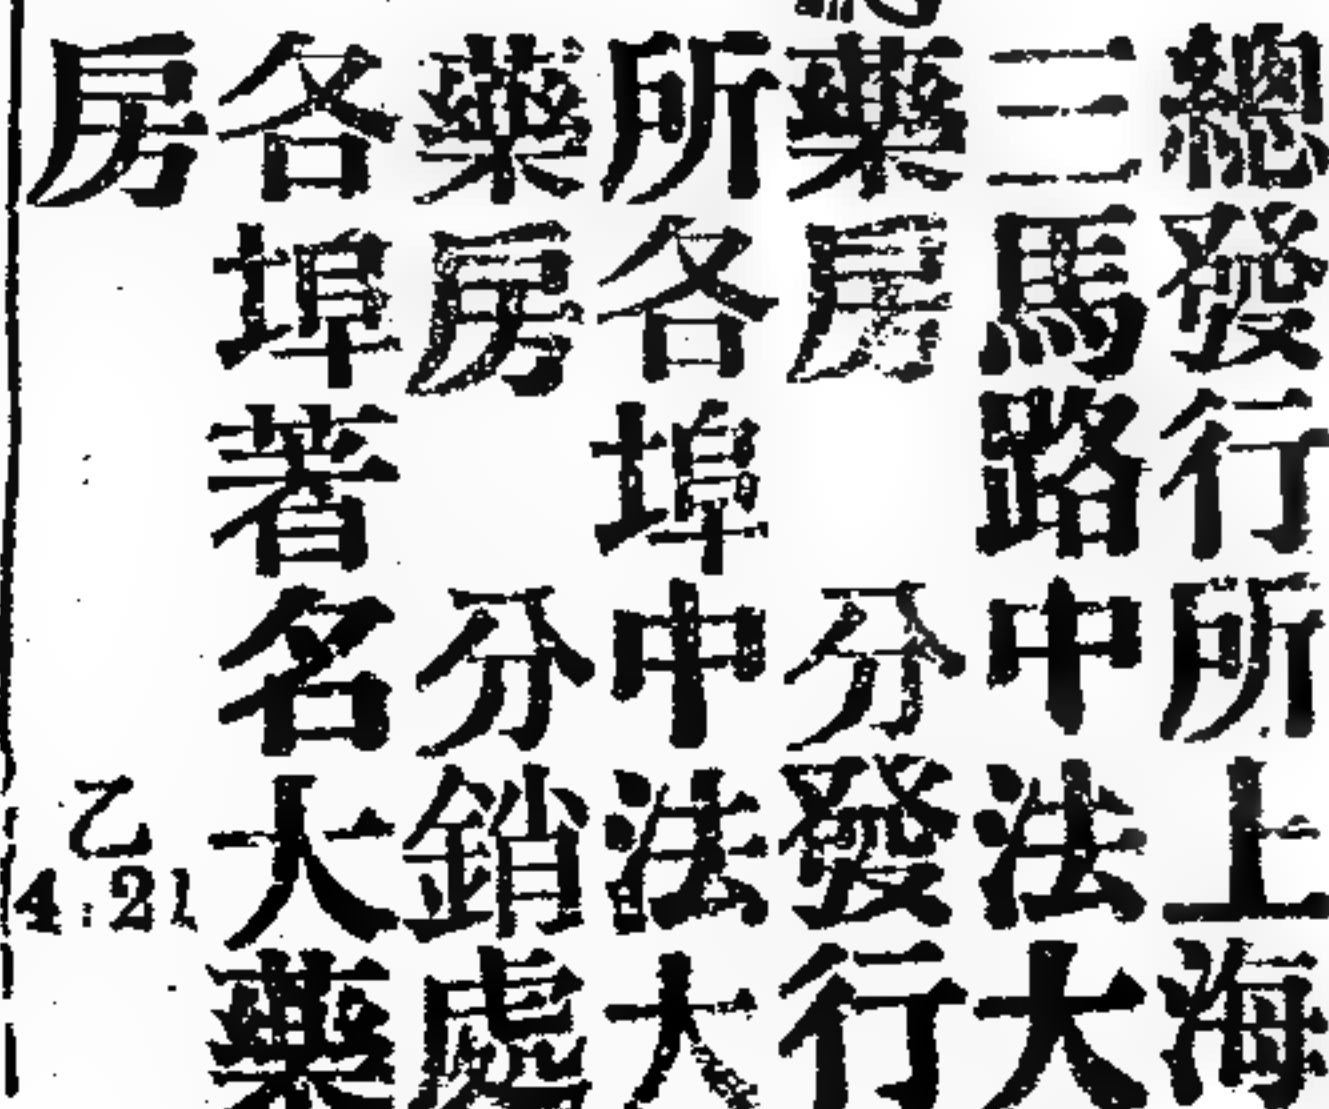 總發行所上海
三馬路中法大
藥房　分發行
所各埠中法大
藥房　分銷處
各埠著名大藥
房
乙
4:21